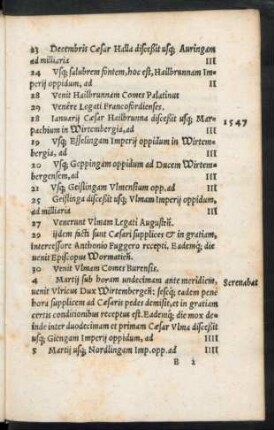 23 Decembris Cæsar Halla discessit usq; Auringam
ad milliaria III
24 Vsq; salubrem fontem, hoc est, Hailbrunnam Im-
perij oppidum, ad II
28 Venit Hailbrunnam Comes Palatinus
29 Venêre Legati Francofordienses.
18 Ianuarij Cæsar Hailbrunna discessit usq; Mar-
pachium in Wirtembergia, ad III
1547
19 Vsq; Esselingam Imperij oppidum in Wirtem-
bergia, ad III
20 Vsq; Geppingam oppidum ad Ducem Wirtem-
bergensem, ad III
21 Vsq; Geislingam Vlmensium opp. ad III
25 Geislinga discessit usq; Vlmam Imperij oppidum,
ad milliaria III
27 Venerunt Vlmam Legati Augustani
29 ijdem facti sunt Cæsari supplices & in gratiam,
intercessore Anthonio Fuggero recepti. Eademq; die
uenit Episcopus Wormatien.
30 Venit Vlmam Comes Burensis.
4 Martij sub horam undecimam ante meridiem,
Serenabat
uenit Vlricus Dux Wirtembergen; seseq; eadem pene
hora supplicem ad Cæsaris pedes demisit, et in gratiam
certis conditionibus receptus est. Eademq; die mox de
inde inter duodecimam et primam Cæsar Vlma discessit
usq; Giengam Imperij oppidum, ad IIII
5 Martij usq; Nordlingam Imp. opp. ad IIII
B 2